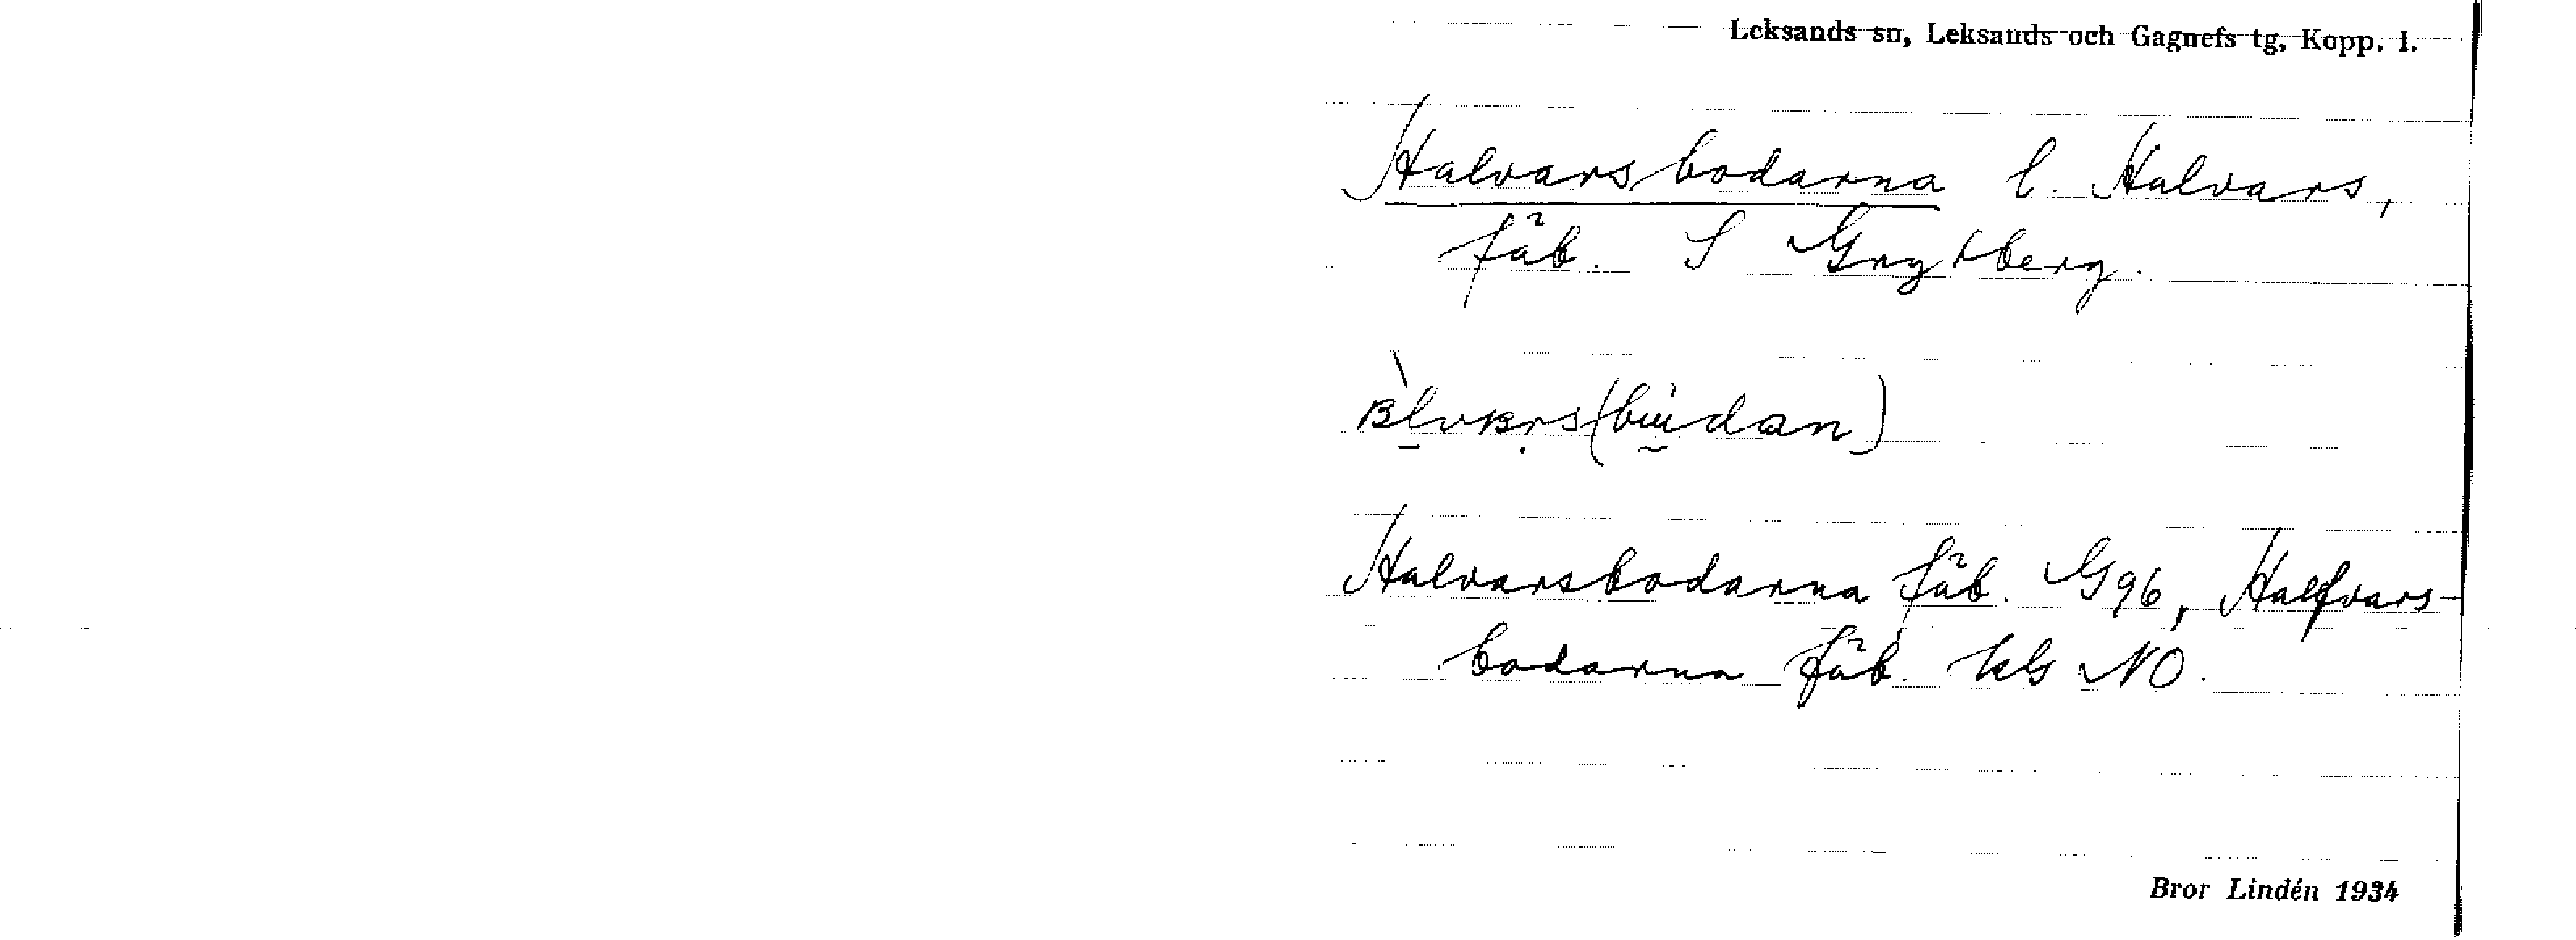 Leksands sn, Leksands och Gagnefs tg, Kopp. l.
Halvarsbodarna l. Halvars,
fäb. S Grytberg.
(
)
Halvarsbodarna fäb. G96, Halfvars-
bodarna fäb. kls NO.
Bror Lindén 1934